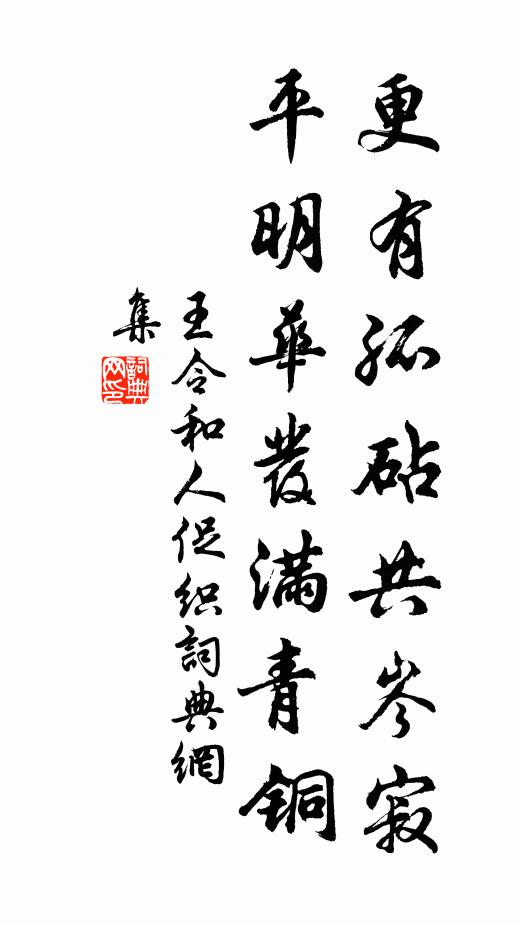 更有孤砧共岑寂
平明華發滿青銅
王令和人促织詞典網
集
詞典
网印